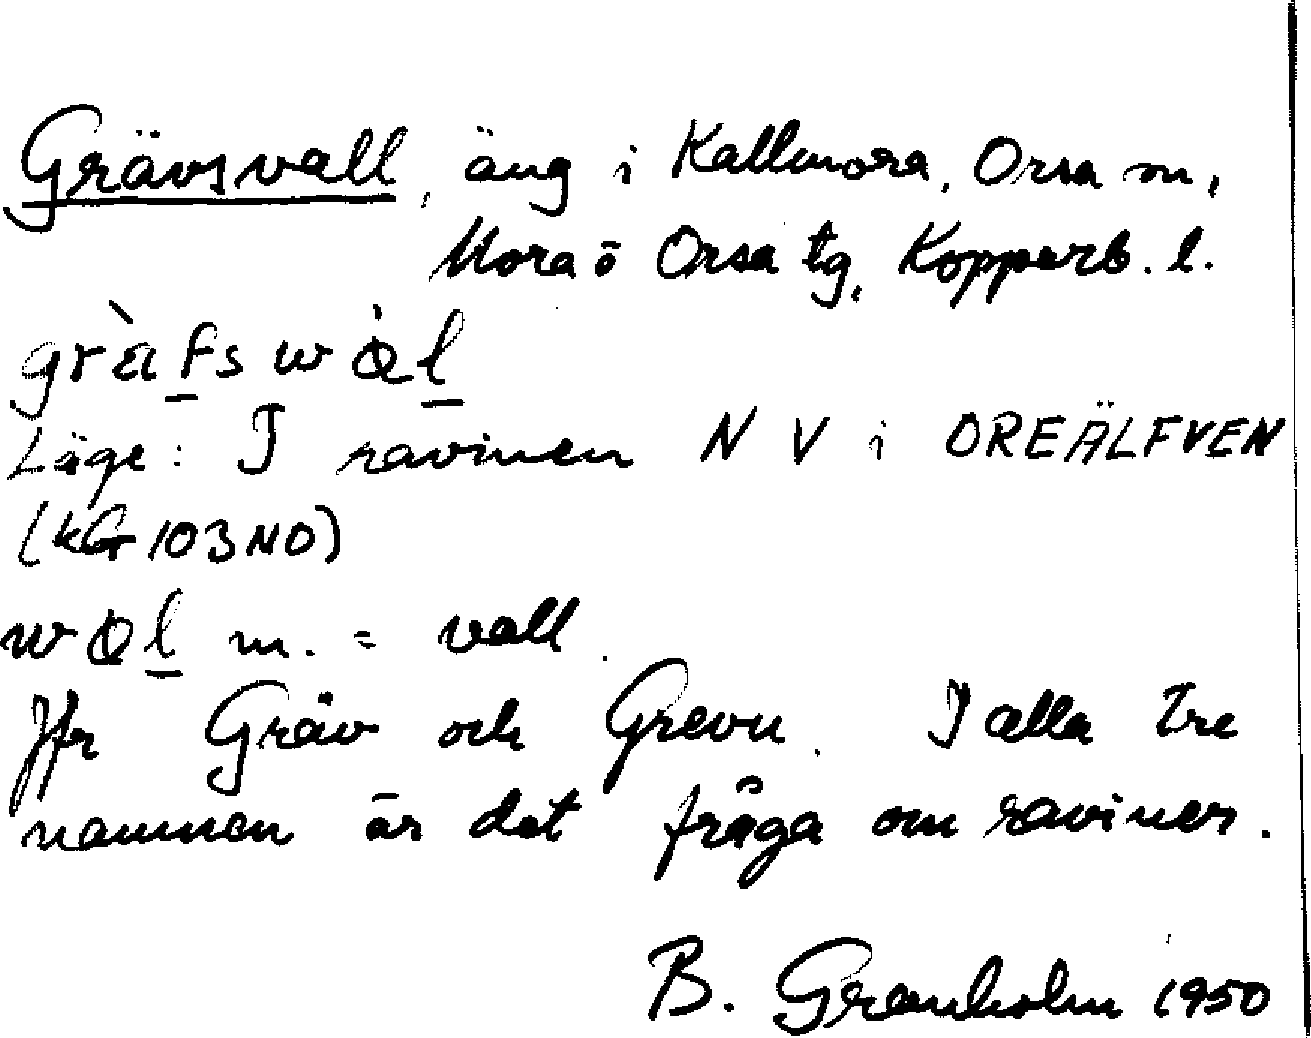 Grävsvall, äng i Kallmora, Orsa sn,
Mora o Orsa tg, Kopparb. l.
Läge: I ravinen NV i OREÄLFVEN
(kG 103 NO)
m. = vall.
Jfr Gräv och Grevu. I alla tre
namnen är det fråga om raviner.
B. Granholm 1950